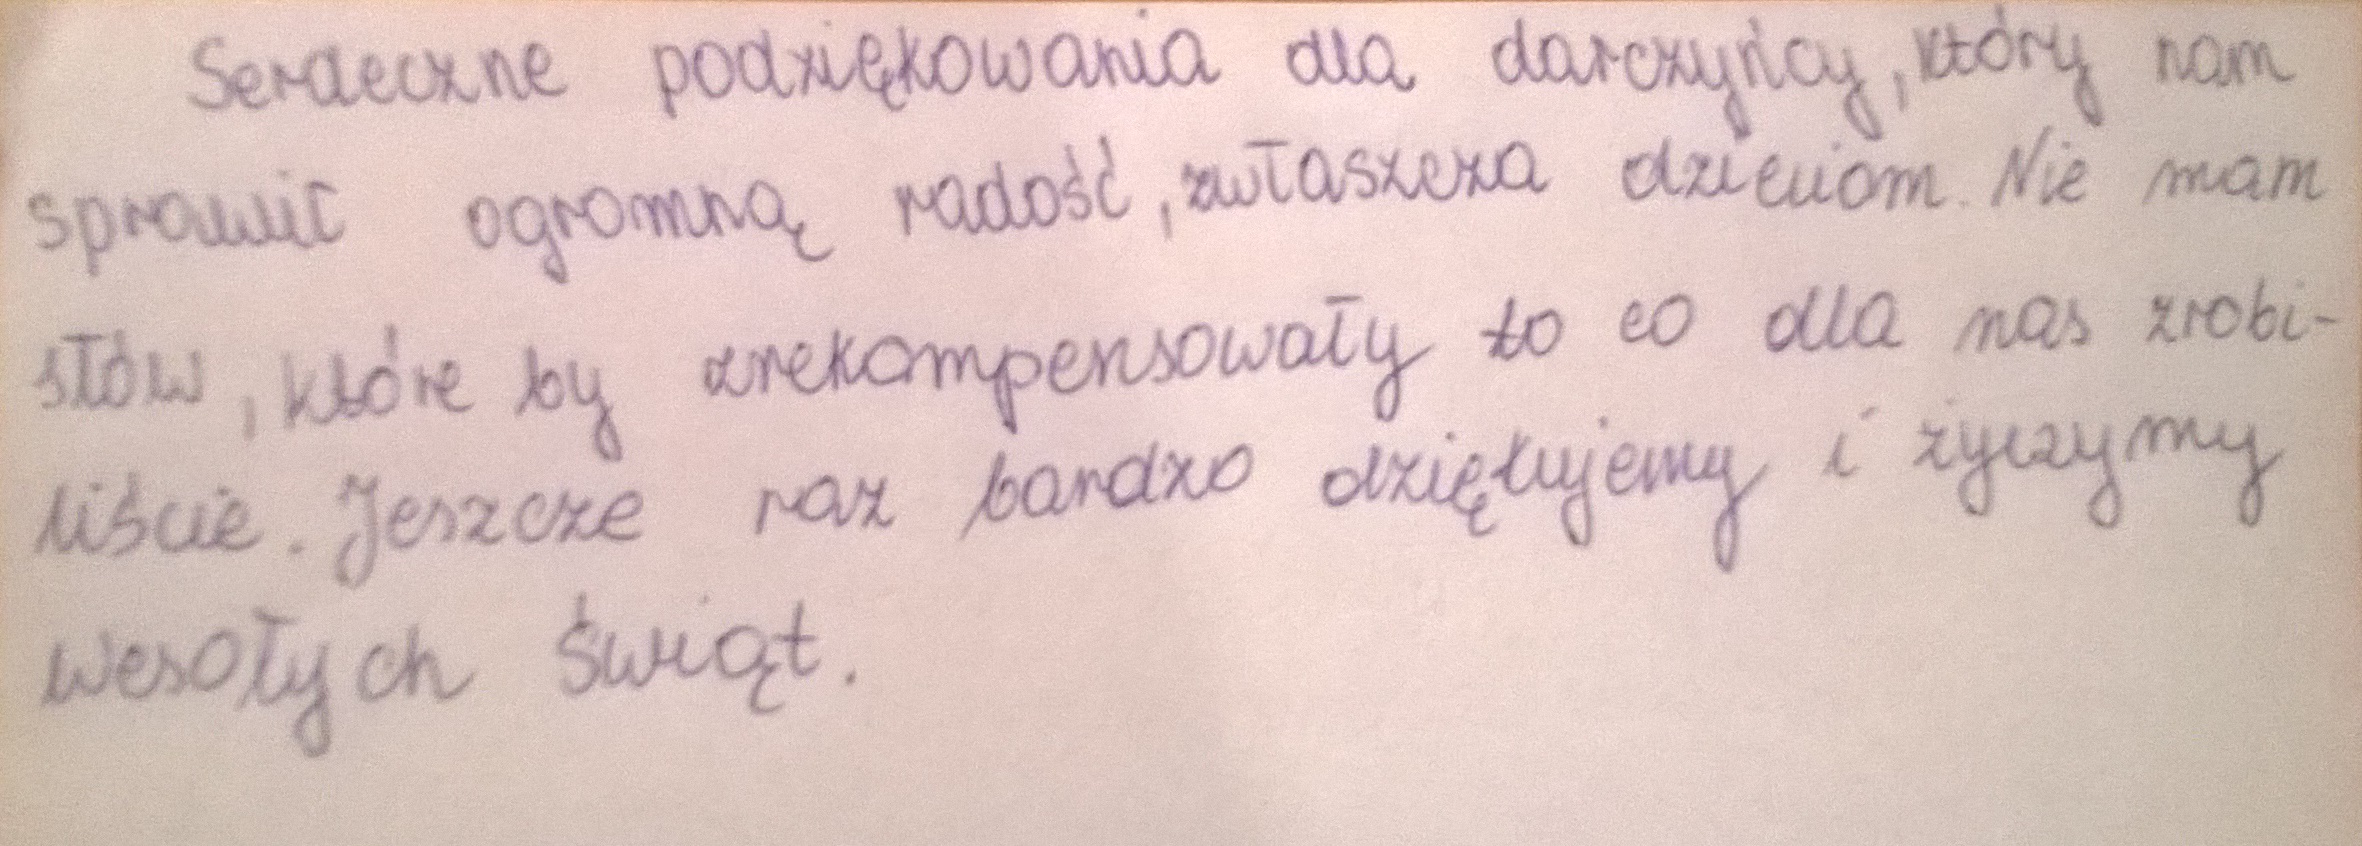 Serdeczne podziękowania dla darczyńcy, który nam
sprawił ogromną radość, zwłaszcza dzieciom. Nie mam
słów, które by zrekompensowały to co dla nas zrobi-
liście. Jeszcze raz bardzo dziękujemy i życzymy
wesołych świąt.